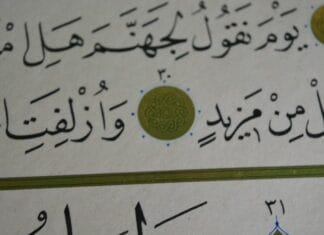 يَوْمَ نَقُولُ لِجَهَنَّمَ هَلِ امْ
لْ مِنْ مَزِيدٍ ٣٠ وَاُزْلِفَتِ
٣١